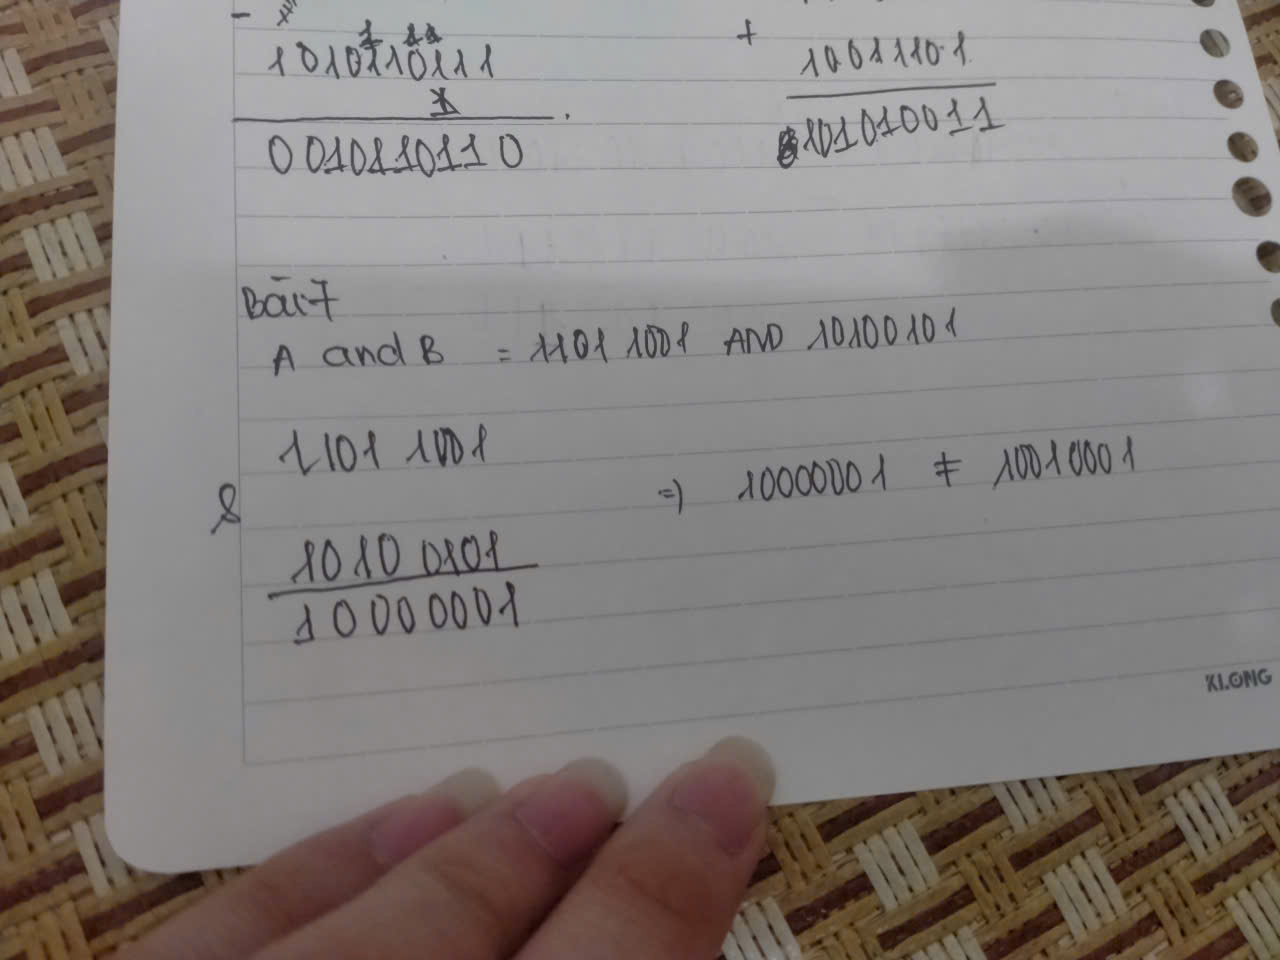 -
1 11
1010110111
1
0010110110
+
10011101
101010011
Bài 7
A and B = 1101 1001 AND 10100101
1101 1001
&
1010 0101
10000001
=) 10000001 ≠ 10010001
KLONG